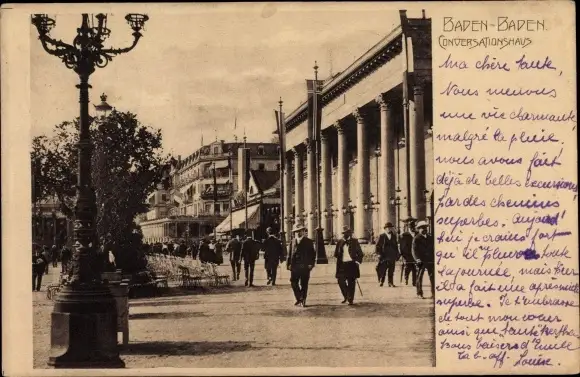 BADEN-BADEN.
CONVERSATIONSHAUS
Ma chère tante,
Nous menons
une vie charmante
malgré la pluie,
nous avons fait
déjà de belles excursions
par des chemins
superbes. Aujourd'
hui je crains fort
qu'il ne pleuve toute
la journée, mais hier
il a fait une après midi
superbe. Je t'embrasse
de tout mon coeur
ainsi que tante Bertha.
Bons baisers d'Emile
Ta b. aff. Louise.